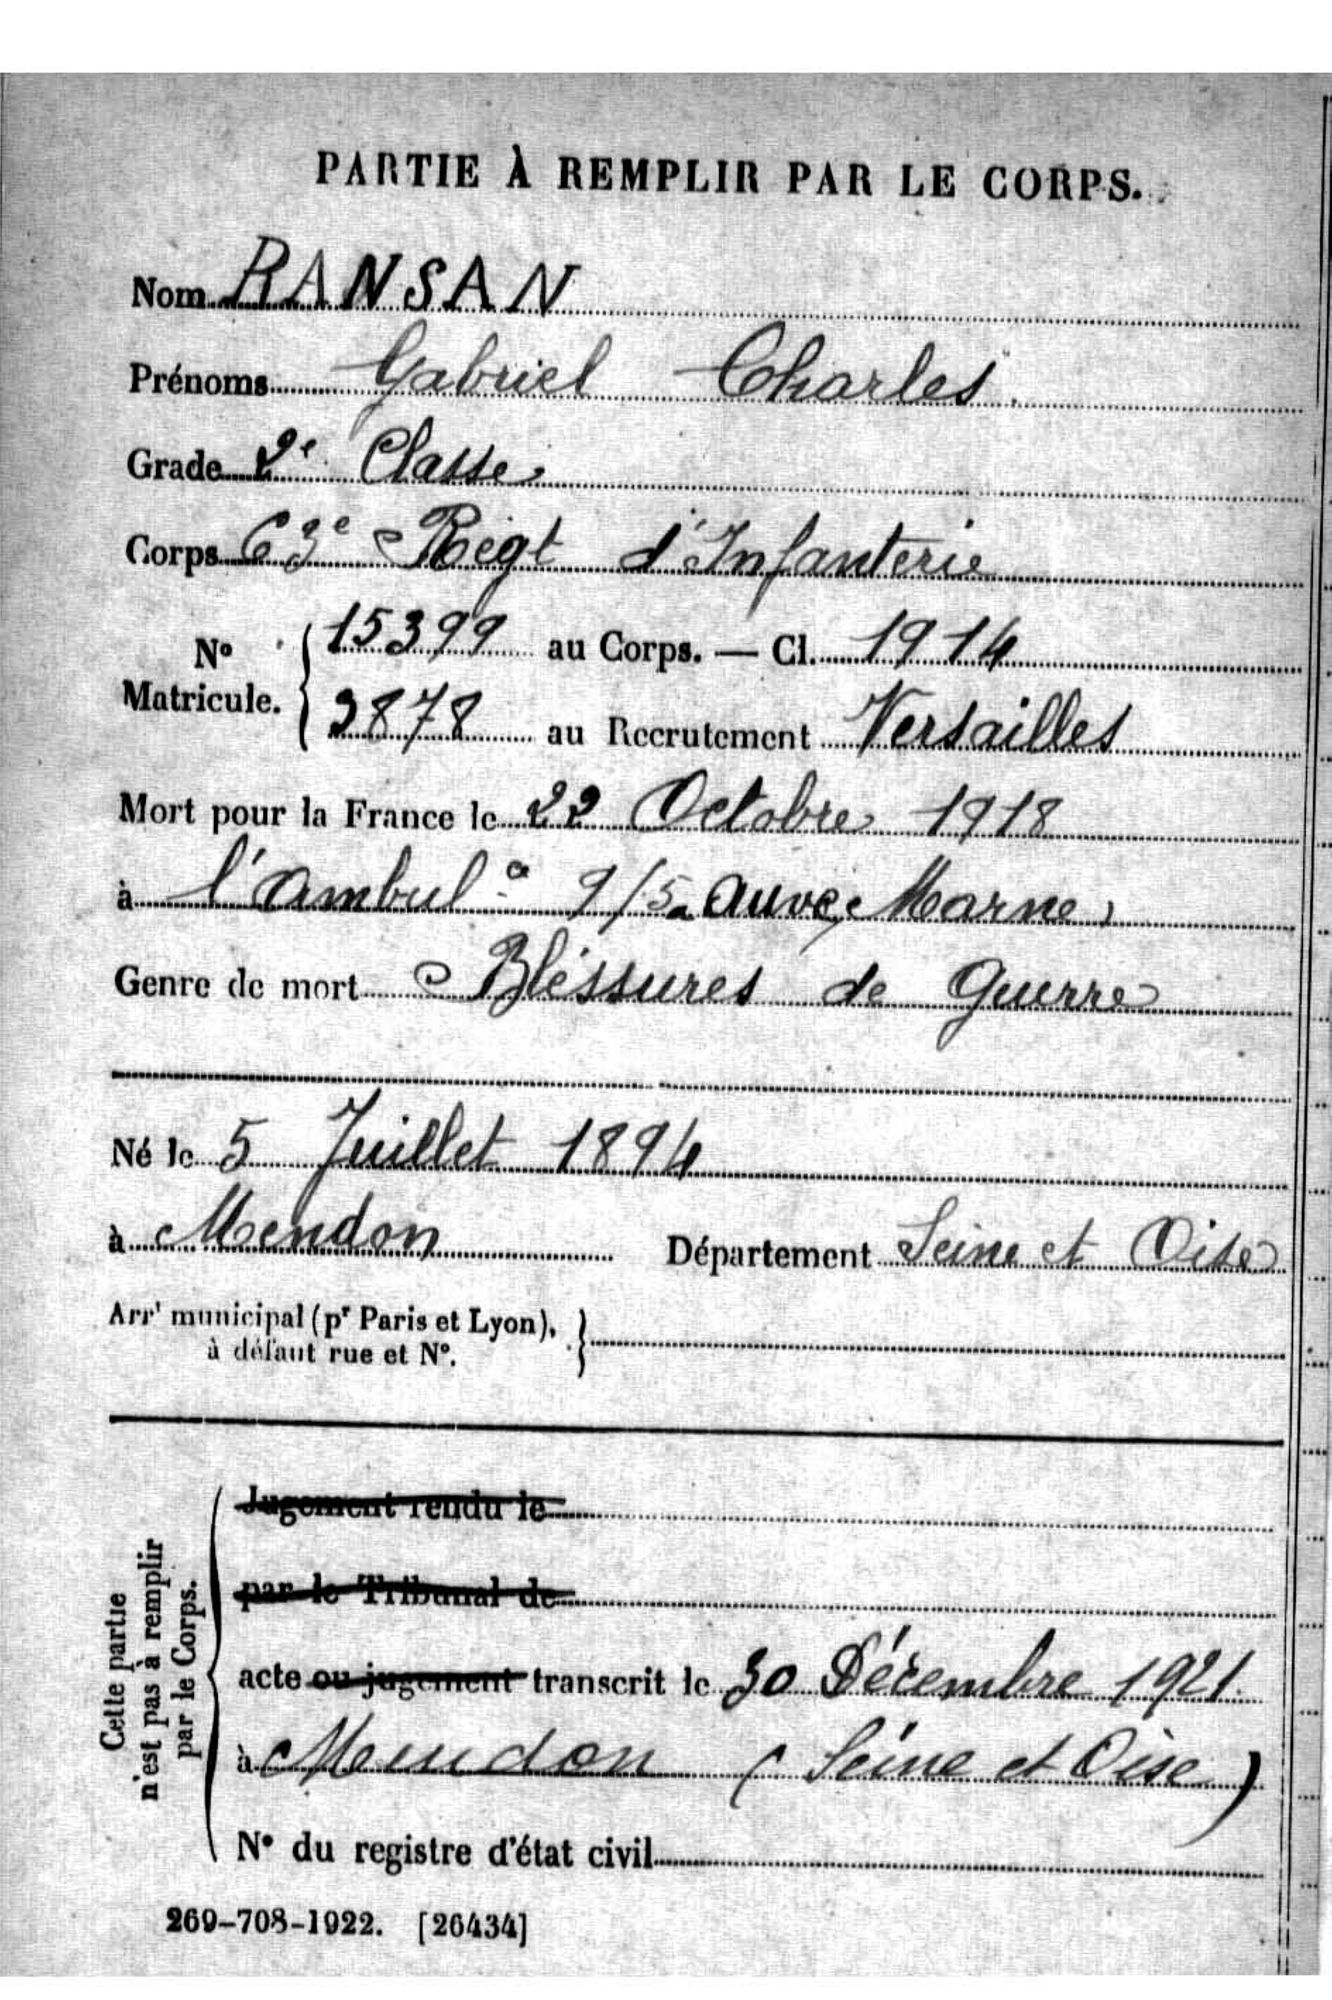 PARTIE À REMPLIR PAR LE CORPS.
Nom RANSAN
Prénoms Gabriel Charles
Grade 2e Classe
Corps 63e Régt d'Infanterie
No Matricule. { 15399 au Corps. — Cl. 1914
3878 au Recrutement Versailles
Mort pour la France le 22 Octobre 1918
à l'Ambulce 9/5 Auve, Marne
Genre de mort Bléssures de Guerre
Né le 5 Juillet 1894
à Meudon Département Seine et Oise
Arrt municipal (pr Paris et Lyon),
à défaut rue et No.
Cette partie
n'est pas à remplir
par le Corps.
Jugement rendu le
par le Tribunal de
acte ou jugement transcrit le 30 Décembre 1921
à Meudon (Seine et Oise)
No du registre d'état civil
269-708-1922. [26434]